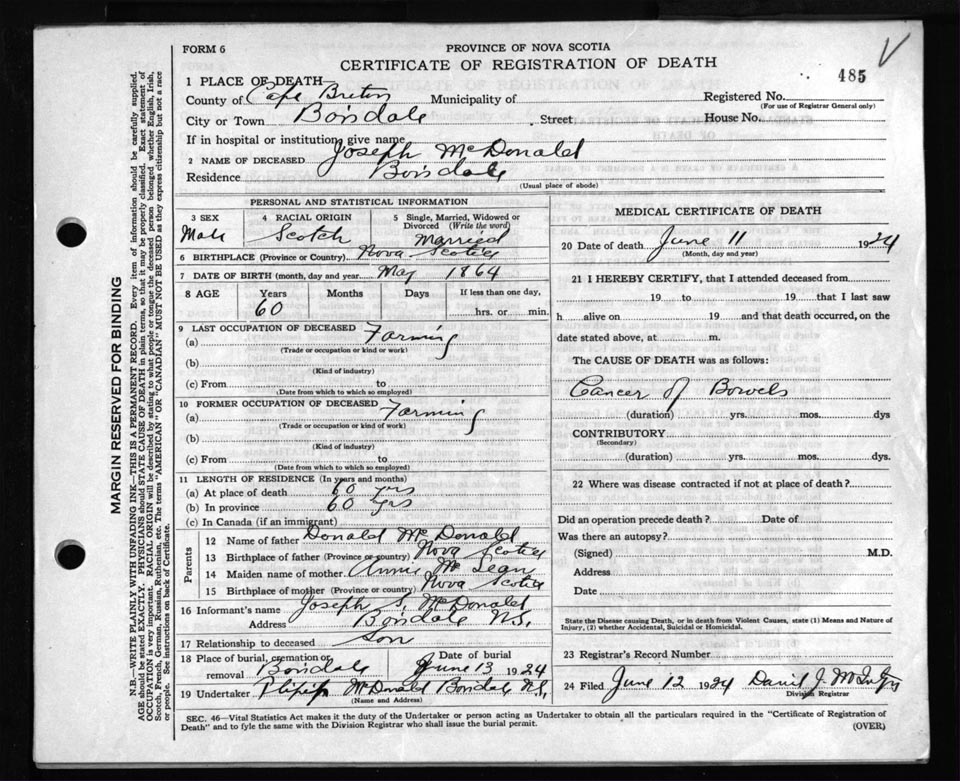 FORM 6
PROVINCE OF NOVA SCOTIA
CERTIFICATE OF REGISTRATION OF DEATH
485
1 PLACE OF DEATH—
County of Cape Breton Municipality of Registered No.
(For use of Registrar General only)
City or Town Boisdale Street House No.
If in hospital or institution, give name
2 NAME OF DECEASED Joseph McDonald
Residence Boisdale
(Usual place of abode)
PERSONAL AND STATISTICAL INFORMATION
3 SEX Male
4 RACIAL ORIGIN Scotch
5 Single, Married, Widowed or Divorced (Write the word) Married
6 BIRTHPLACE (Province or Country) Nova Scotia
7 DATE OF BIRTH (month, day and year) May 1864
8 AGE Years Months Days If less than one day,
60 hrs. or min.
9 LAST OCCUPATION OF DECEASED
(a) Farming
(Trade or occupation or kind or work)
(b)
(Kind of industry)
(c) From to
(Date from which to which so employed)
10 FORMER OCCUPATION OF DECEASED
(a) Farming
(Trade or occupation or kind of work)
(b)
(Kind of industry)
(c) From to
(Date from which to which so employed)
11 LENGTH OF RESIDENCE (In years and months)
(a) At place of death 60 yrs
(b) In province 60 yrs
(c) In Canada (if an immigrant)
Parents
12 Name of father Donald McDonald
13 Birthplace of father (Province or country) Nova Scotia
14 Maiden name of mother Annie McLean
15 Birthplace of mother (Province or country) Nova Scotia
16 Informant's name Joseph S. McDonald
Address Boisdale N.S.
17 Relationship to deceased Son
18 Place of burial, cremation or removal Boisdale Date of burial June 13 1924
19 Undertaker McDonald Boisdale N.S.
(Name and Address)
MEDICAL CERTIFICATE OF DEATH
20 Date of death June 11 1924
(Month, day and year)
21 I HEREBY CERTIFY, that I attended deceased from
19 to 19 that I last saw
h alive on 19 and that death occurred, on the
date stated above, at m.
The CAUSE OF DEATH was as follows:
Cancer of Bowels
(duration) yrs. mos. dys
CONTRIBUTORY
(Secondary)
(duration) yrs. mos. dys.
22 Where was disease contracted if not at place of death?
Did an operation precede death? Date of
Was there an autopsy?
(Signed) M.D.
Address
Date
State the Disease causing Death, or in death from Violent Causes, state (1) Means and Nature of
Injury, (2) whether Accidental, Suicidal or Homicidal.
23 Registrar's Record Number
24 Filed June 12 1924 J.
Division Registrar
SEC. 46—Vital Statistics Act makes it the duty of the Undertaker or person acting as Undertaker to obtain all the particulars required in the "Certificate of Registration of
Death" and to fyle the same with the Division Registrar who shall issue the burial permit. (OVER)
MARGIN RESERVED FOR BINDING
N.B.—WRITE PLAINLY WITH UNFADING INK—THIS IS A PERMANENT RECORD. Every item of information should be carefully supplied.
AGE should be stated EXACTLY. PHYSICIANS should STATE CAUSE OF DEATH in plain terms, so that it may be properly classified. Exact statement of
OCCUPATION is very important. RACIAL ORIGIN will be described by stating to what people or tongue the deceased person belonged whether English, Irish,
Scotch, French, German, Russian, Ruthenian, etc. The terms "AMERICAN" OR "CANADIAN" MUST NOT BE USED as they express citizenship but not a race
or people. See instructions on back of Certificate.